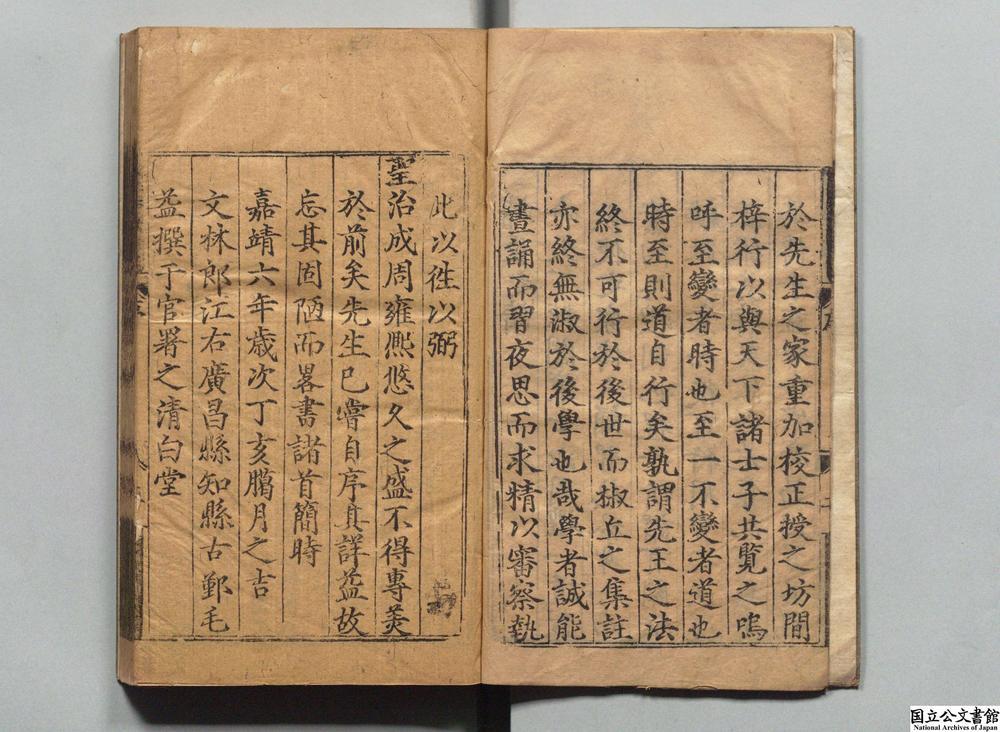 於先生之家重加校正授之坊間
梓行以與天下諸士子共覽之嗚
呼至變者時也至一不變者道也
時至則道自行矣孰謂先王之法
終不可行於後世而椒丘之集註
亦終無淑於後學也哉學者誠能
晝誦而習夜思而求精以審察執
此以徃以弼
聖治成周雍熈悠久之盛不得專羙
於前矣先生已嘗自序其詳益故
忘其固陋而畧書諸首簡時
嘉靖六年歲次丁亥臈月之吉
文林郎江右廣昌縣知縣古鄞毛
益撰于官署之清白堂
国立公文書館
National Archives of Japan